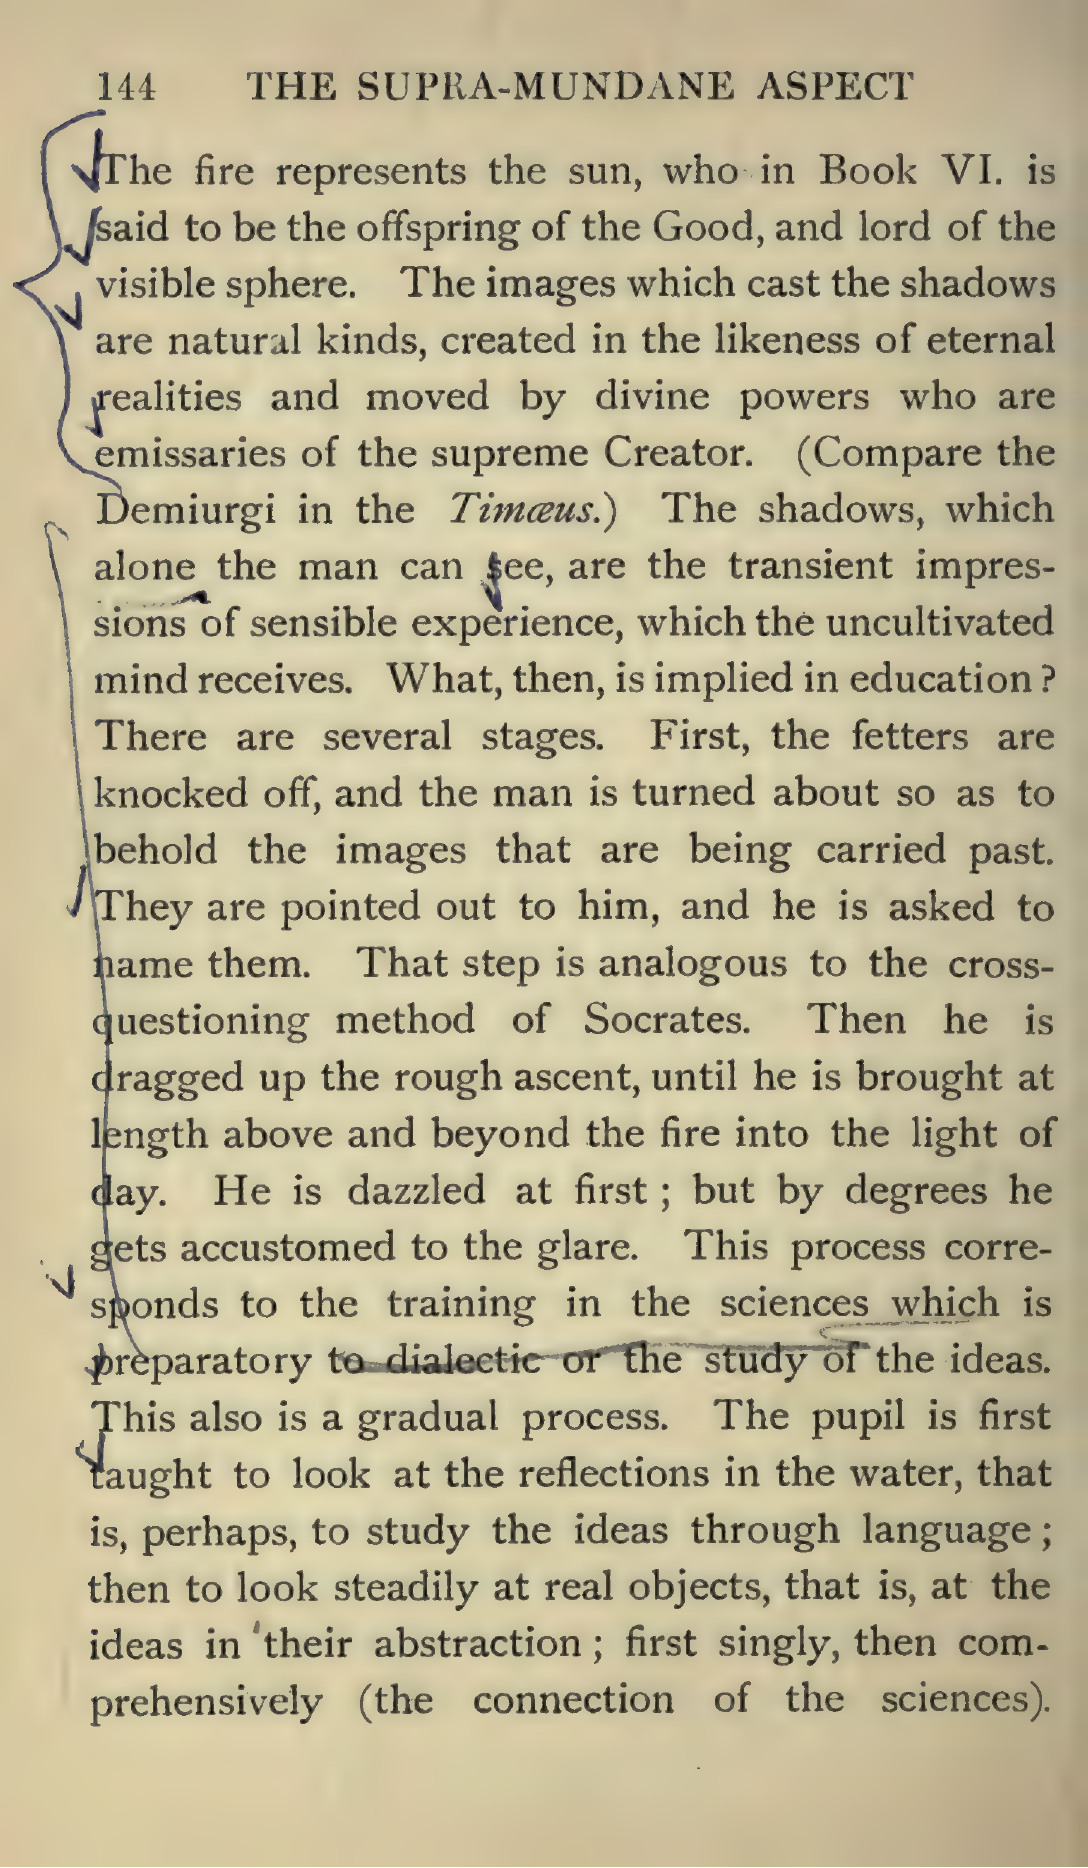 144 THE SUPRA-MUNDANE ASPECT
The fire represents the sun, who in Book VI. is
said to be the offspring of the Good, and lord of the
visible sphere. The images which cast the shadows
are natural kinds, created in the likeness of eternal
realities and moved by divine powers who are
emissaries of the supreme Creator. (Compare the
Demiurgi in the Timæus.) The shadows, which
alone the man can see, are the transient impres-
sions of sensible experience, which the uncultivated
mind receives. What, then, is implied in education ?
There are several stages. First, the fetters are
knocked off, and the man is turned about so as to
behold the images that are being carried past.
They are pointed out to him, and he is asked to
name them. That step is analogous to the cross-
questioning method of Socrates. Then he is
dragged up the rough ascent, until he is brought at
length above and beyond the fire into the light of
day. He is dazzled at first ; but by degrees he
gets accustomed to the glare. This process corre-
sponds to the training in the sciences which is
preparatory to dialectic or the study of the ideas.
This also is a gradual process. The pupil is first
taught to look at the reflections in the water, that
is, perhaps, to study the ideas through language ;
then to look steadily at real objects, that is, at the
ideas in their abstraction ; first singly, then com-
prehensively (the connection of the sciences).